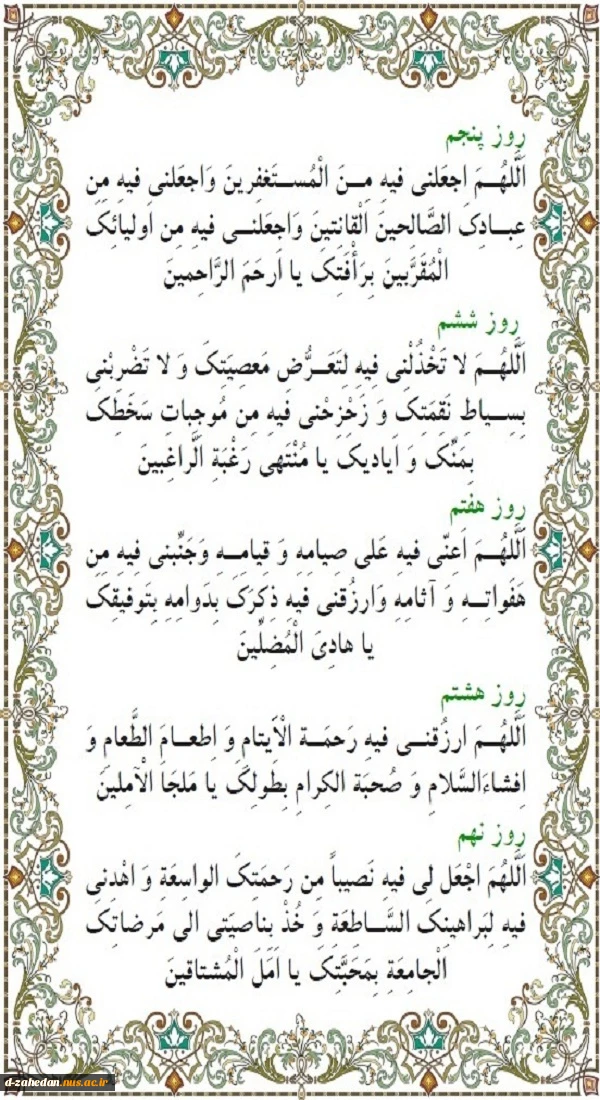 روز پنجم
اَللَّهُمَ اجعَلنی فیهِ مِنَ الْمُستَغفِرینَ وَاجعَلنی فیهِ مِن
عِبادِکَ الصَّالِحینَ اْلقانِتینَ وَاجعَلنی فیهِ مِن اَولیائِکَ
الْمُقَرَّبینَ بِرَأْفَتِکَ یا اَرحَمَ الرَّاحِمینَ
روز ششم
اَللَّهُمَ لا تَخْذُلْنِی فیهِ لِتَعَرُّض مَعصِیَتِکَ وَ لا تَضْرِبْنی
بِسِیاط نَقمَتِکَ وَ زَحْزِحْنی فیهِ مِن مُوجِباتِ سَخَطِکَ
بِمَنِّکَ وَ اَیادیکَ یا مُنْتَهی رَغْبَةِ الَّراغِبینَ
روز هفتم
اَللَّهُمَ اَعنّی فیهِ عَلی صِیامِه وَ قیامِهِ وَجَنِّبنی فیهِ مِن
هَفَواتِهِ وَ آثامِهِ وَارزُقنی فیهِ ذِکرَکَ بِدَوامِهِ بِتَوفیقِکَ
یا هادِیَ الْمُضِلّینَ
روز هشتم
اَللَّهُمَ ارزُقنی فیهِ رَحمَةَ الْاَیتامِ وَ اِطعامَ الطَّعامِ وَ
اِفشاءَالسَّلامِ وَ صُحبَةَ الکِرامِ بِطَولِکَ یا مَلجَاَ الْآمِلینَ
روز نهم
اَللَّهُمَ اجْعَل لی فیهِ نَصیباً مِن رَحمَتِکَ الواسِعَةِ وَ اهْدنی
فیهِ لِبَراهینِکَ السَّاطِعَةِ وَ خُذْ بِناصِیَتی الی مَرضاتِکَ
الْجامِعَةِ بِمَحَبَّتِکَ یا اَمَلَ الْمُشتاقینَ
d-zahedan.nus.ac.ir